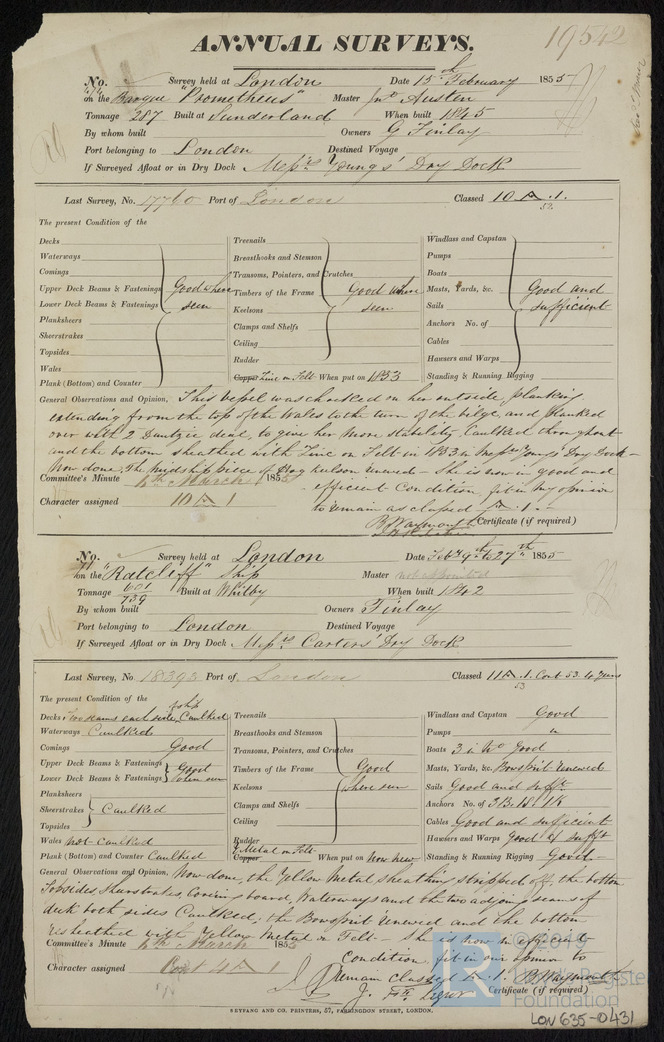 ANNUAL SURVEYS.
19542
No. Survey held at London Date 15th February 1855
on the Barque "Prometheus" Master Jno Austen
Tonnage 287 Built at Sunderland When built 1845
By whom built Owners G Finlay
Port belonging to London Destined Voyage
If Surveyed Afloat or in Dry Dock Messrs Youngs' Dry Dock
Last Survey, No. 17760 Port of London Classed 10 A .1.
52.
The present Condition of the
Decks Treenails Windlass and Capstan
Waterways Breasthooks and Stemson Pumps
Comings Transoms, Pointers, and Crutches Boats
Upper Deck Beams & Fastenings Good where Timbers of the Frame Good where Masts, Yards, &c. Good and
Lower Deck Beams & Fastenings seen Keelsons seen Sails sufficient
Planksheers Clamps and Shelfs Anchors No. of
Sheerstrakes Ceiling Cables
Topsides Rudder Hawsers and Warps
Wales Copper Zinc on Felt When put on 1853 Standing & Running Rigging
Plank (Bottom) and Counter
General Observations and Opinion, This vessel was chocked on her outside, planking
extending from the top of the Wales to the turn of the bilge, and planked
over with 2 Dantzic deal, to give her more stability, Caulked throughout
and the bottom sheathed with Zinc on Felt in 1853 in Messrs Youngs' Dry Dock -
Now done, The midship piece of Hog kelson renewed - She is now in good and
Committee's Minute 6th March 1855 efficient Condition fit in my opinion
Character assigned 10 A 1 to remain as classed A .1. -
B Waymouth Certificate (if required)
No. Survey held at London Date Feby 9th to 27th 1855
on the "Ratcliff" Ship Master not appointed
Tonnage 601/739 Built at Whitby When built 1842
By whom built Owners Finlay
Port belonging to London Destined Voyage
If Surveyed Afloat or in Dry Dock Messrs Carters' Dry Dock
Last Survey, No. 18393 Port of London Classed 11 A .1. Cont 53. 4 years
53
The present Condition of the
Decks, Two seams each side Caulked Treenails Windlass and Capstan Good
Waterways Caulked Breasthooks and Stemson Pumps "
Comings Good Transoms, Pointers, and Crutches Boats 3 in No Good
Upper Deck Beams & Fastenings Good Timbers of the Frame Good Masts, Yards, &c. Bowsprit renewed
Lower Deck Beams & Fastenings when seen Keelsons where seen Sails Good and sufft
Planksheers Clamps and Shelfs Anchors No. of 3B. 1S. 1K
Sheerstrakes Caulked Ceiling Cables Good and sufficient
Topsides Rudder Hawsers and Warps Good & sufft
Wales not Caulked Y Metal on Felt
Plank (Bottom) and Counter Caulked Copper When put on Now new Standing & Running Rigging Good -
General Observations and Opinion, Now done, the Yellow Metal sheathing stripped off, the bottom
Topsides, Shearstrakes, Covering board, Waterways and the two adjoing seams of
deck both sides Caulked; the Bowsprit renewed and the bottom
resheathed with Yellow Metal on Felt - She is now in efficient
Committee's Minute 6th March 1855 Condition fit in our opinion to
Character assigned Cont 4 A 1 remain classed A .1. B Waymouth
Certificate (if required)
SEYFANG AND CO. PRINTERS, 57, FARRINGDON STREET, LONDON.
© 2019
Lloyd's Register
Foundation
LON 635-0431